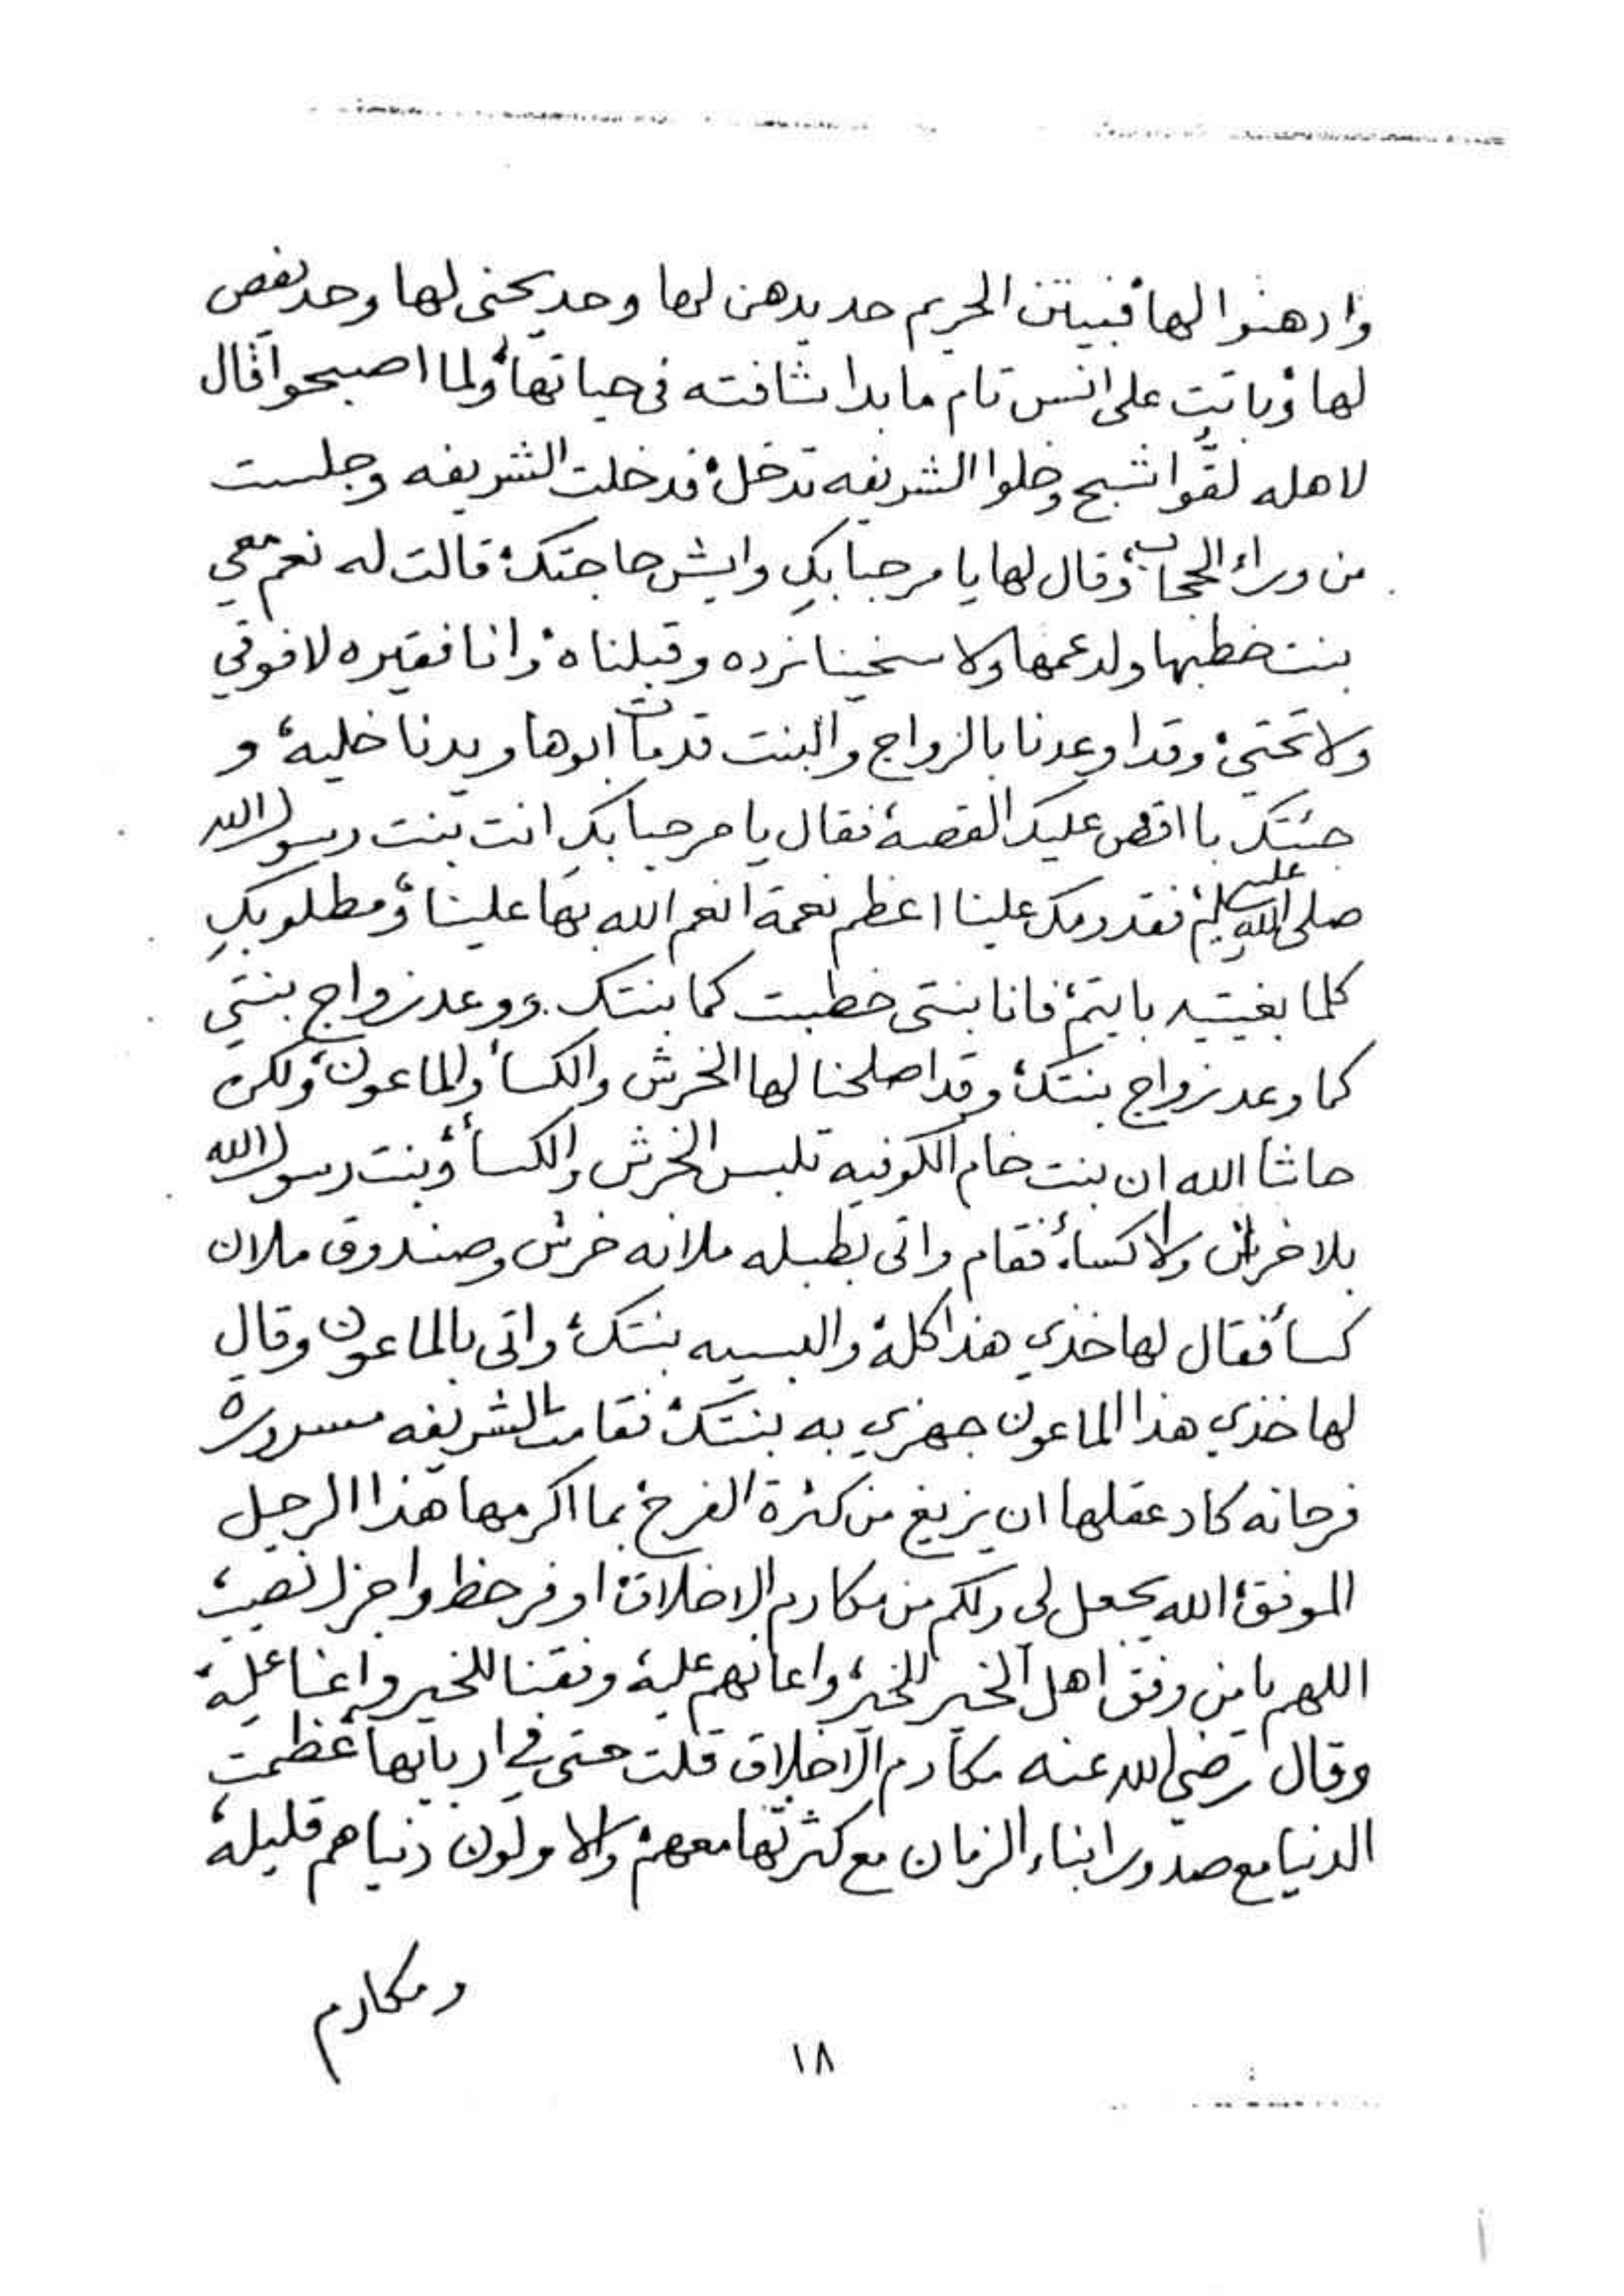 وادهنوا لها، فبيتن الحريم حد يدهن لها وحد يحنى لها وحد يغص
لها، وباتت على انس تام ما بدا شافته فى حياتها، ولما اصبحوا قال
لاهله لقّوا شبح وخلوا الشريفه تدخل، فدخلت الشريفه وجلست
من وراء الحجاب، وقال لها يا مرحبا بكِ وايش حاجتك، قالت له نعم معي
بنت خطبها ولد عمها ولا سخينا نرده وقبلناه، وانا فقيره لا فوقي
ولا تحتي، وقد اوعدنا بالزواج والبنت قد مات ابوها ويدنا خليه، و
جئتك با اقص عليك القصه، فقال يا مرحبا بكِ انت بنت رسول الله
صلى الله عليه وسلم، فقدومك علينا اعظم نعمة انعم الله بها علينا، ومطلوبكِ
كلما بغيتيه بايتم، فانا بنتى خطبت كما بنتك، ووعد زواج بنتي
كما وعد زواج بنتك، وقد اصلحنا لها الخرش والكسأ والماعون، ولكن
حاشا الله ان بنت خام الكوفيه تلبس الخرش والكسأ، وبنت رسول الله
بلا خرش ولا كسأ، فقام واتى بطبله ملانه خرش وصندوق ملان
كسأ فقال لها خذي هذا كله، والبسيه بنتك، واتى بالماعون وقال
لها خذي هذا الماعون جهزي به بنتك، فقامت الشريفه مسروره
فرحانه كاد عقلها ان يزيغ من كثرة الفرح، بما اكرمها هذا الرجل
الموفق، الله يجعل لى ولكم من مكارم الاخلاق، اوفر حظ واجزل نصيب،
اللهم يا من وفق اهل الخير للخير، واعانهم عليه، وفقنا للخير واعنا عليه،
وقال رضي الله عنه مكارم الاخلاق قلت حتى في اربابها، عظمت
الدنيا مع صدور ابناء الزمان مع كثرتها معهم، والاولون دنياهم قليله،
ومكارم
١٨